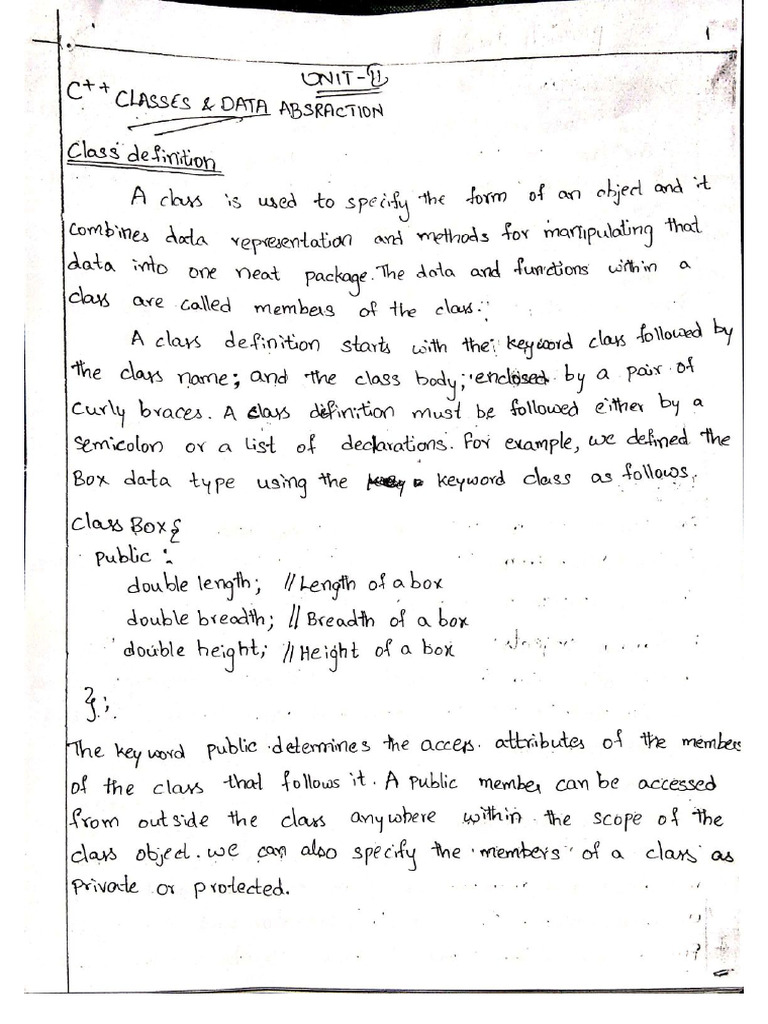 1
UNIT-II
C++ CLASSES & DATA ABSRACTION
Class definition
A class is used to specify the form of an object and it
combines data representation and methods for manipulating that
data into one neat package. The data and functions within a
class are called members of the class.
A class definition starts with the keyword class followed by
the class name; and the class body; enclosed by a pair of
curly braces. A class definition must be followed either by a
semicolon or a list of declarations. For example, we defined the
Box data type using the keyword class as follows.
class Box{
public :
double length; // Length of a box
double breadth; // Breadth of a box
double height; // Height of a box
};
The keyword public determines the access attributes of the members
of the class that follows it. A public member can be accessed
from outside the class anywhere within the scope of the
class object. we can also specify the members of a class as
private or protected.